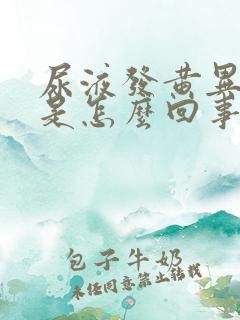 尿液發黄異
是怎麼回事
包子牛奶
未经同意禁止转载